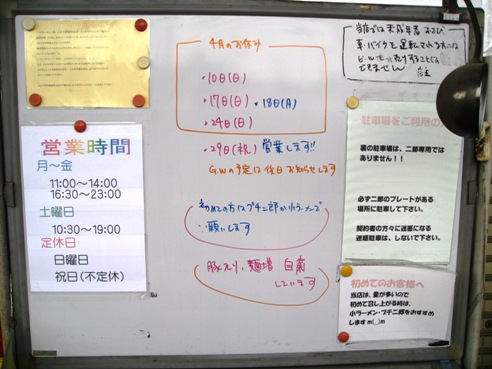 営業時間
月～金
11:00～14:00
16:30～23:00
土曜日
10:30～19:00
定休日
日曜日
祝日(不定休)
4月のお休み
・10日(日)
・17日(日)・18日(月)
・24日(日)
・29日(祝)営業します!!
G.Wの予定は後日お知らせします
初めての方はプチ二郎か小ラーメンで
お願いします
豚入り、麺増 自粛
しています
当店では未成年者および
車・バイクを運転される方には
ビールを
できません 店主
駐車場をご利用の
裏の駐車場は、二郎専用では
ありません！！
必ず二郎のプレートがある
場所に駐車して下さい。
契約者の方々に迷惑になる
迷惑駐車は、しないで下さい。
初めてのお客様へ
当店は、量が多いので
初めて召し上がる時は、
小ラーメン・プチ二郎をおすすめ
します m(__)m